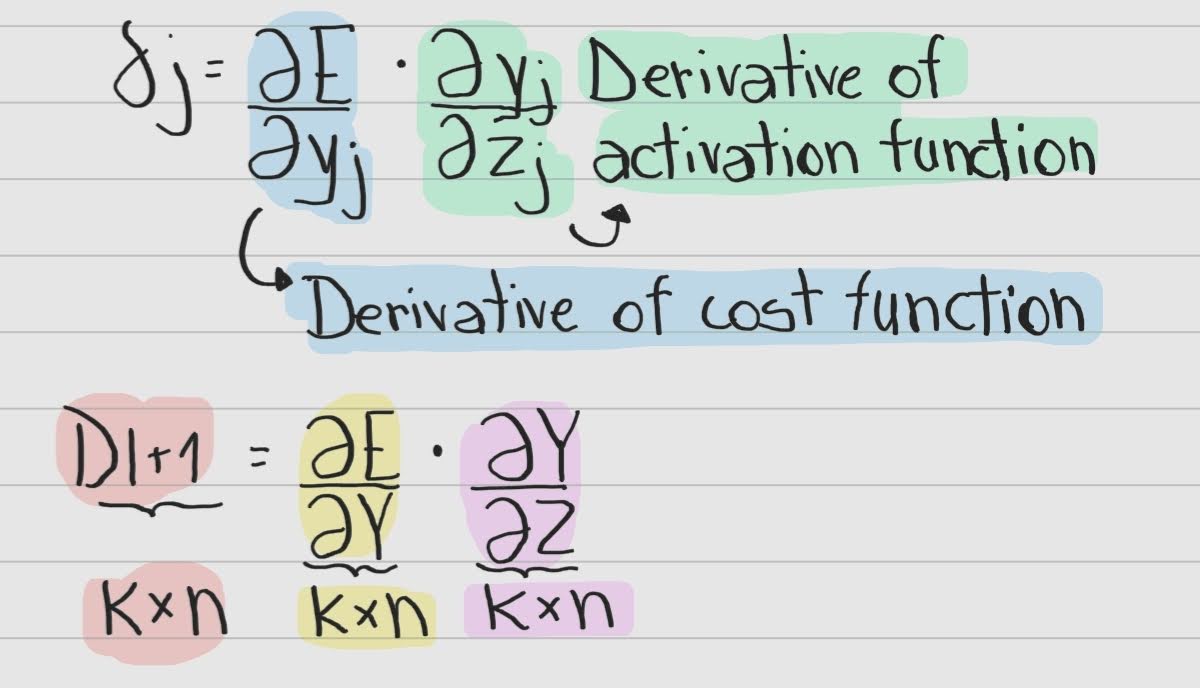 δj = ∂E/∂yj · ∂yj/∂zj Derivative of
activation function
Derivative of cost function
Dl+1 = ∂E/∂Y · ∂Y/∂Z
K×n K×n K×n